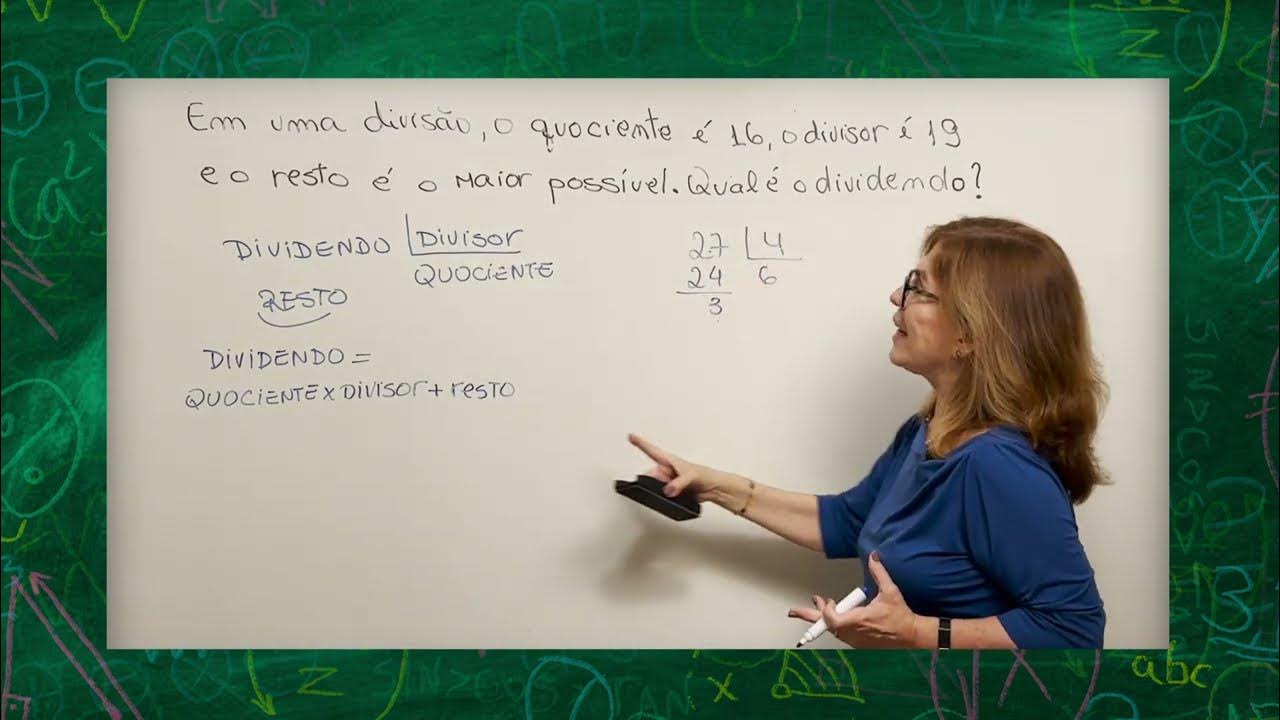 Em uma divisão, o quociente é 16, o divisor é 19
e o resto é o maior possível. Qual é o dividendo?
DIVIDENDO DIVISOR
QUOCIENTE
RESTO
27 4
24 6
3
DIVIDENDO =
QUOCIENTE x DIVISOR + RESTO
(a²
SINPCOS
Z
Z
x
abc